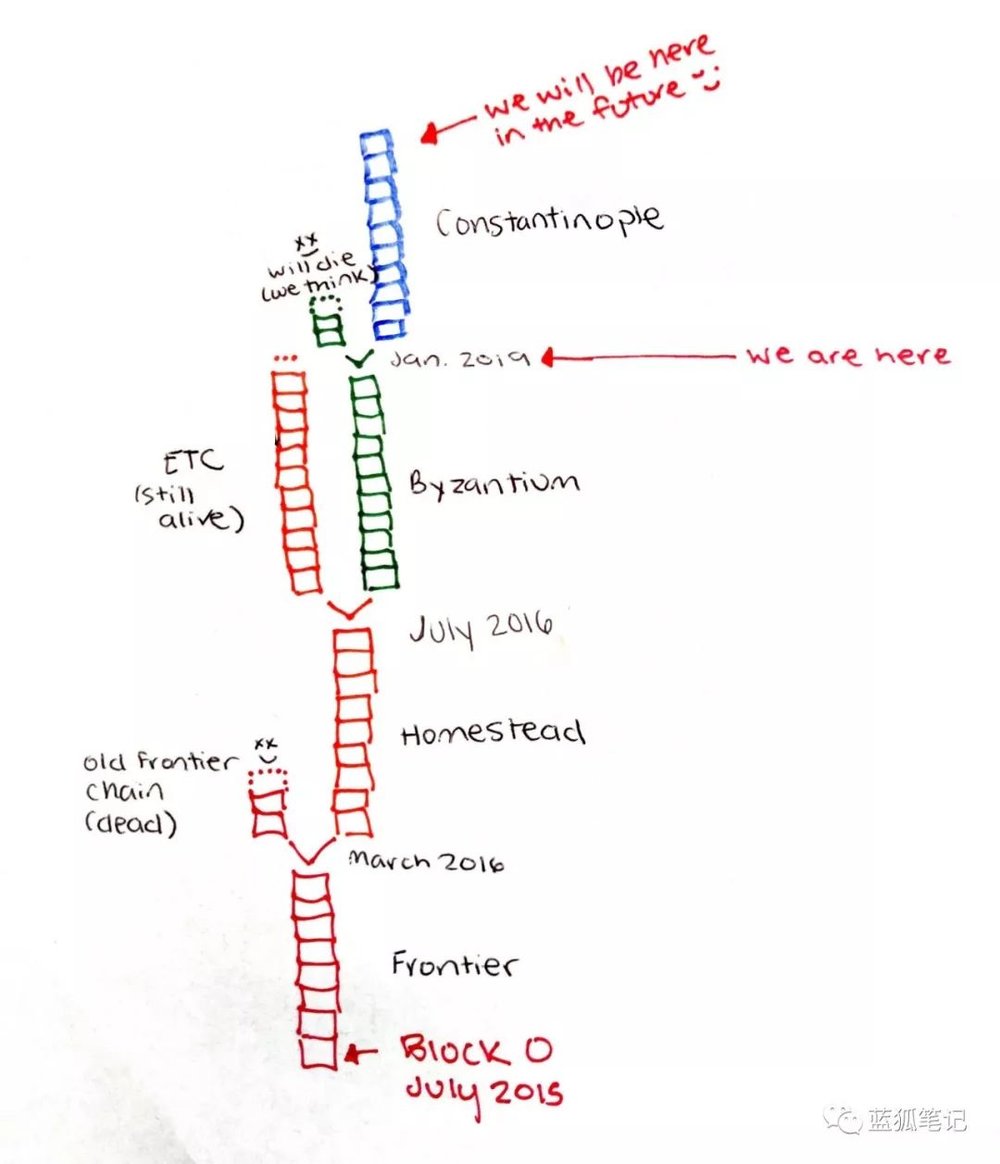 we will be here
in the future
Constantinople
xx
will die
(we think)
Jan. 2019
we are here
ETC
(still
alive)
Byzantium
July 2016
Homestead
xx
old frontier
chain
(dead)
March 2016
Frontier
BLOCK 0
July 2015
蓝狐笔记